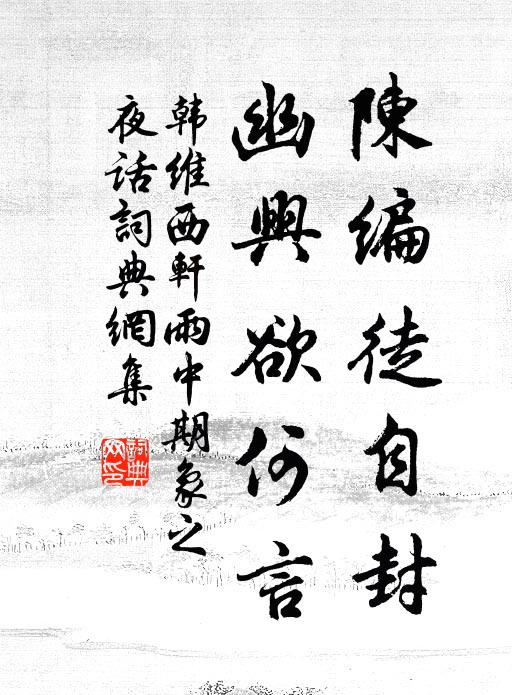 陳編徒自封
幽興欲何言
韩維西軒雨中期象之
夜話詞典網集
詞典
网印